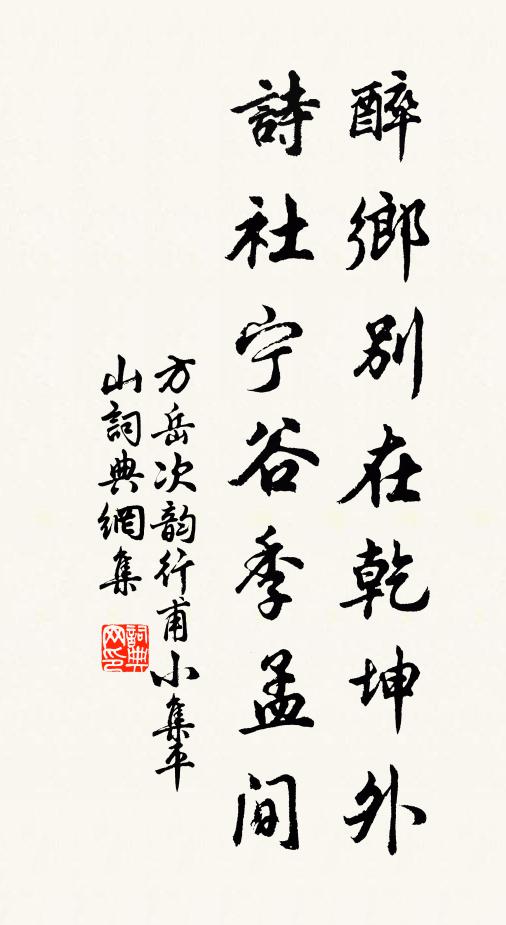 醉鄉別在乾坤外
詩社宁谷季孟间
方岳次韵行甫小集平
山詞典網集
詞典
网印